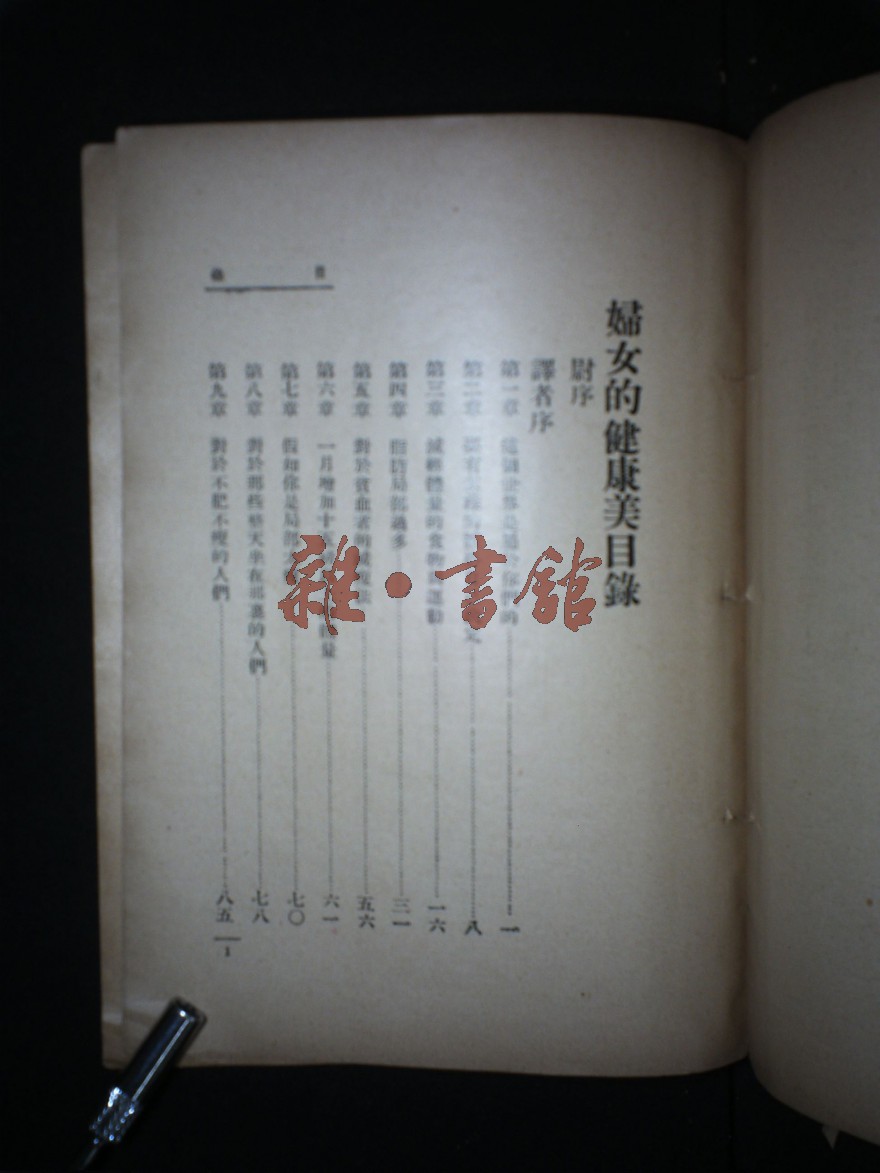 婦女的健康美目錄
尉序
譯者序
第一章 這個世界是屬 你們的 一
第二章 都有 八
第三章 減輕體量的食物 運動 一六
第四章 脂肪局部過多 三一
第五章 對於貧血者的減瘦法 五六
第六章 一月增加十 量 六一
第七章 假如你是局部 七〇
第八章 對於那些整天坐在那裏的人們 七八
第九章 對於不肥不瘦的人們 八五
目錄
1
雜·書館